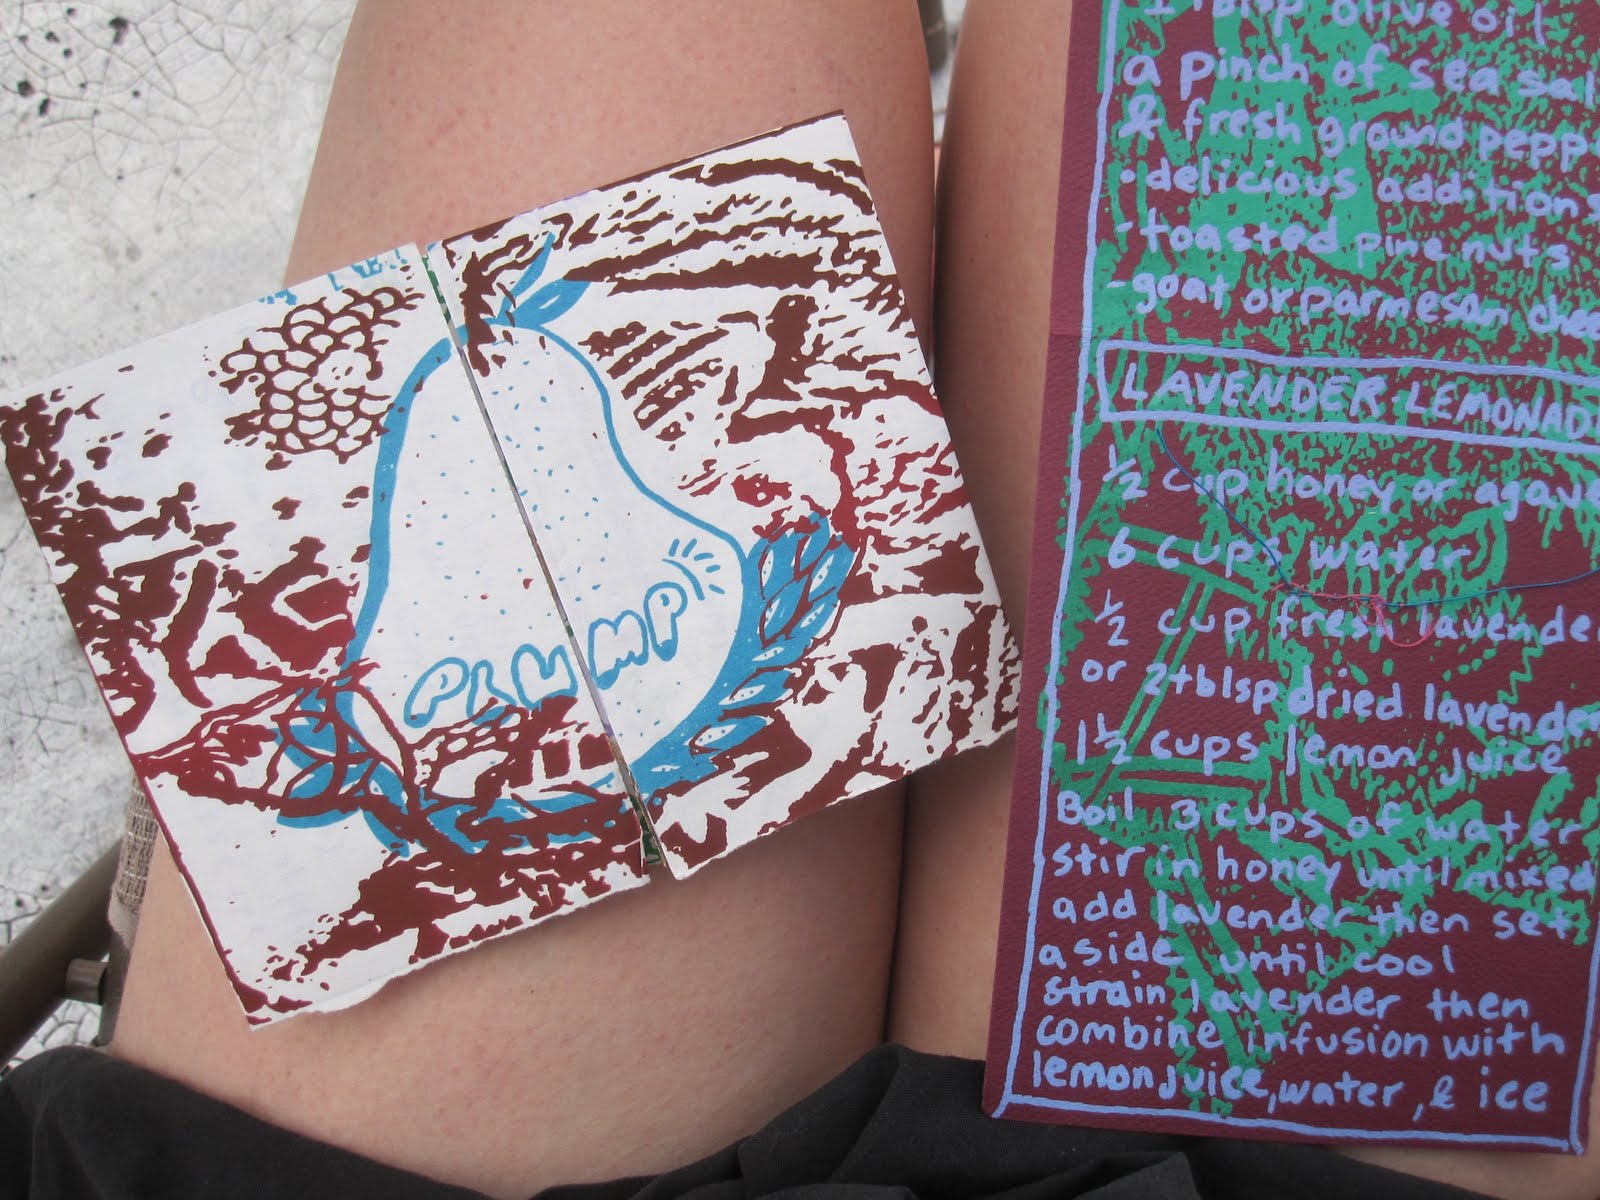 PLUMP
1 tblsp olive oil
a pinch of sea sal
& fresh ground peppe
• delicious additions
- toasted pine nuts
- goat or parmesan chee
LAVENDER LEMONAD
½ cup honey or agave
6 cups water
½ cup fresh lavender
or 2 tblsp dried lavender
1½ cups lemon juice
Boil 3 cups of water
stir in honey until mixed
add lavender then set
aside until cool
strain lavender then
combine infusion with
lemon juice, water, & ice